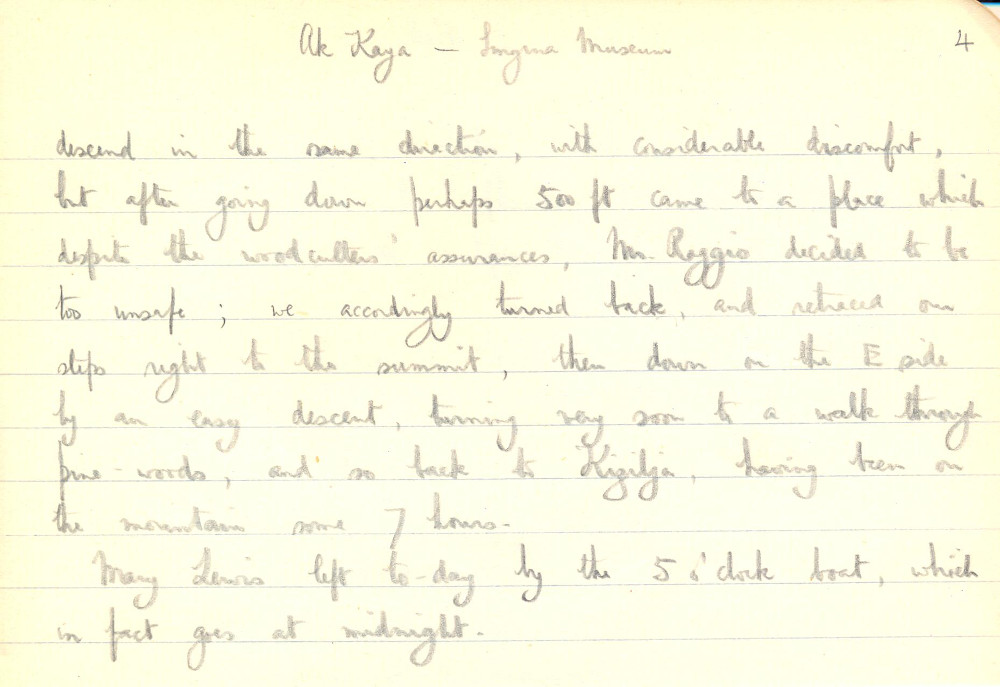 Ak Kaya — Smyrna Museum
4
descend in the same direction, with considerable discomfort,
but after going down perhaps 500 ft came to a place which
despite the woodcutters' assurances, Mr. Raggio decided to be
too unsafe; we accordingly turned back, and retraced our
steps right to the summit, then down on the E side
by an easy descent, turning very soon to a walk through
pine-woods, and so back to Kizilja, having been on
the mountain some 7 hours.
Mary Lewis left to-day by the 5 o'clock boat, which
in fact goes at midnight.